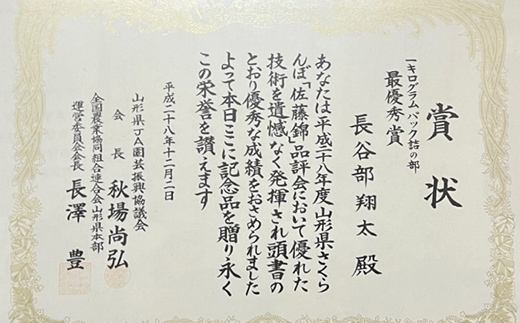 賞状
一キログラムパック詰の部
最優秀賞
長谷部翔太 殿
あなたは平成二十八年度山形県さくら
んぼ「佐藤錦」品評会において優れた
技術を遺憾なく発揮され頭書の
とおり優秀な成績をおさめられました
よって本日ここに記念品を贈り永く
この栄誉を讃えます
平成二十八年十二月二日
山形県JA園芸振興協議会
会長 秋場尚弘
全国農業協同組合連合会山形県本部
運営委員会会長 長澤豊